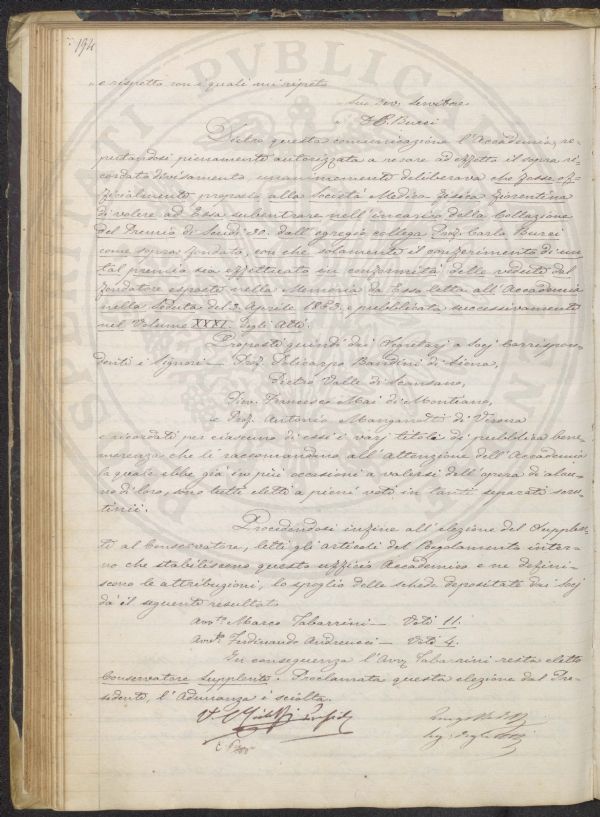 194
e rispetto con i quali mi ripeto
Suo dev. Servitore
C. Burci
Dietro questa comunicazione l'Accademia, re-
putandosi pienamente autorizzata a recare ad effetto il sopra ri-
cordato divisamento, unanimemente deliberava che fosse of-
ficialmente proposto alla Società Medico-Fisica Fiorentina
di volere ad Essa subentrare nell'incarico della Collazione
del Premio di Scudi 30. dall'egregio collega Prof. Carlo Burci
come sopra fondato, con che solamente il conferimento di un
tal premio sia effettuato in conformità delle vedute dal
fondatore esposte nella Memoria da Essa letta all'Accademia
nella Seduta del 3. Aprile 1853. e pubblicata successivamente
nel Volume XXXI. degli Atti.
Proposti quindi dai Segretarj a Socj Corrispon-
denti i Signori — Prof. Policarpo Bandini di Siena,
Pietro Valle di Scansano,
Francesco Mai di Montiano,
e Prof. Antonio Manganotti di Verona
e ricordati per ciascuno di essi i varj titoli di pubblica bene-
merenza che li raccomandino all'attenzione dell'Accademia
la quale ebbe già in più occasioni a valersi dell'opera di alcu-
no di loro, sono tutti eletti a pieni voti in tanti separati scru-
tinii.
Procedendosi infine all'elezione del Supplen-
te al Conservatore, letti gli articoli del Regolamento inter-
no che stabiliscono questo uffizio Accademico e ne defini-
scono le attribuzioni, lo spoglio delle schede depositate dai Socj
dà il seguente resultato
Avvto. Marco Tabarrini — Voti 11.
Avvto. Ferdinando Andreucci — Voti 4.
In conseguenza l'Avv. Tabarrini resta eletto
Conservatore supplente. Proclamata questa elezione dal Pre-
sidente, l'Adunanza è sciolta.
SPERITATI PVBLICAE